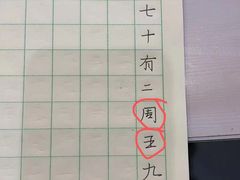 七十有二周五九